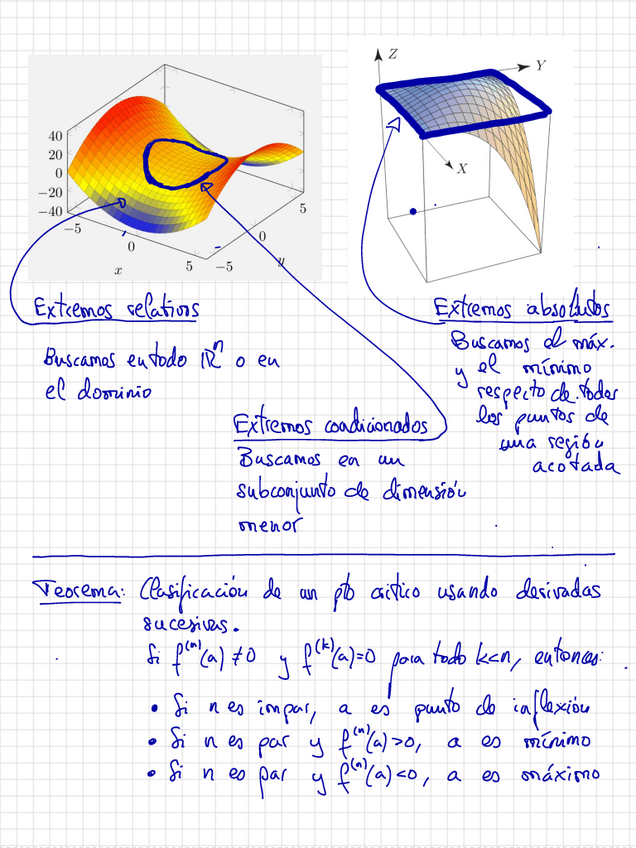 Z
Y
X
40
20
0
−20
−40
−5
0
5
x
−5
0
5
y
Extremos relativos
Buscamos en todo ℝⁿ o en
el dominio
Extremos absolutos
Buscamos el máx.
y el mínimo
respecto de todos
los puntos de
una región
acotada
Extremos condicionados
Buscamos en un
subconjunto de dimensión
menor
Teorema: Clasificación de un pto crítico usando derivadas
sucesivas.
Si f⁽ⁿ⁾(a) ≠ 0 y f⁽ᵏ⁾(a)=0 para todo k<n, entonces:
• Si n es impar, a es punto de inflexión
• Si n es par y f⁽ⁿ⁾(a)>0, a es mínimo
• Si n es par y f⁽ⁿ⁾(a)<0, a es máximo